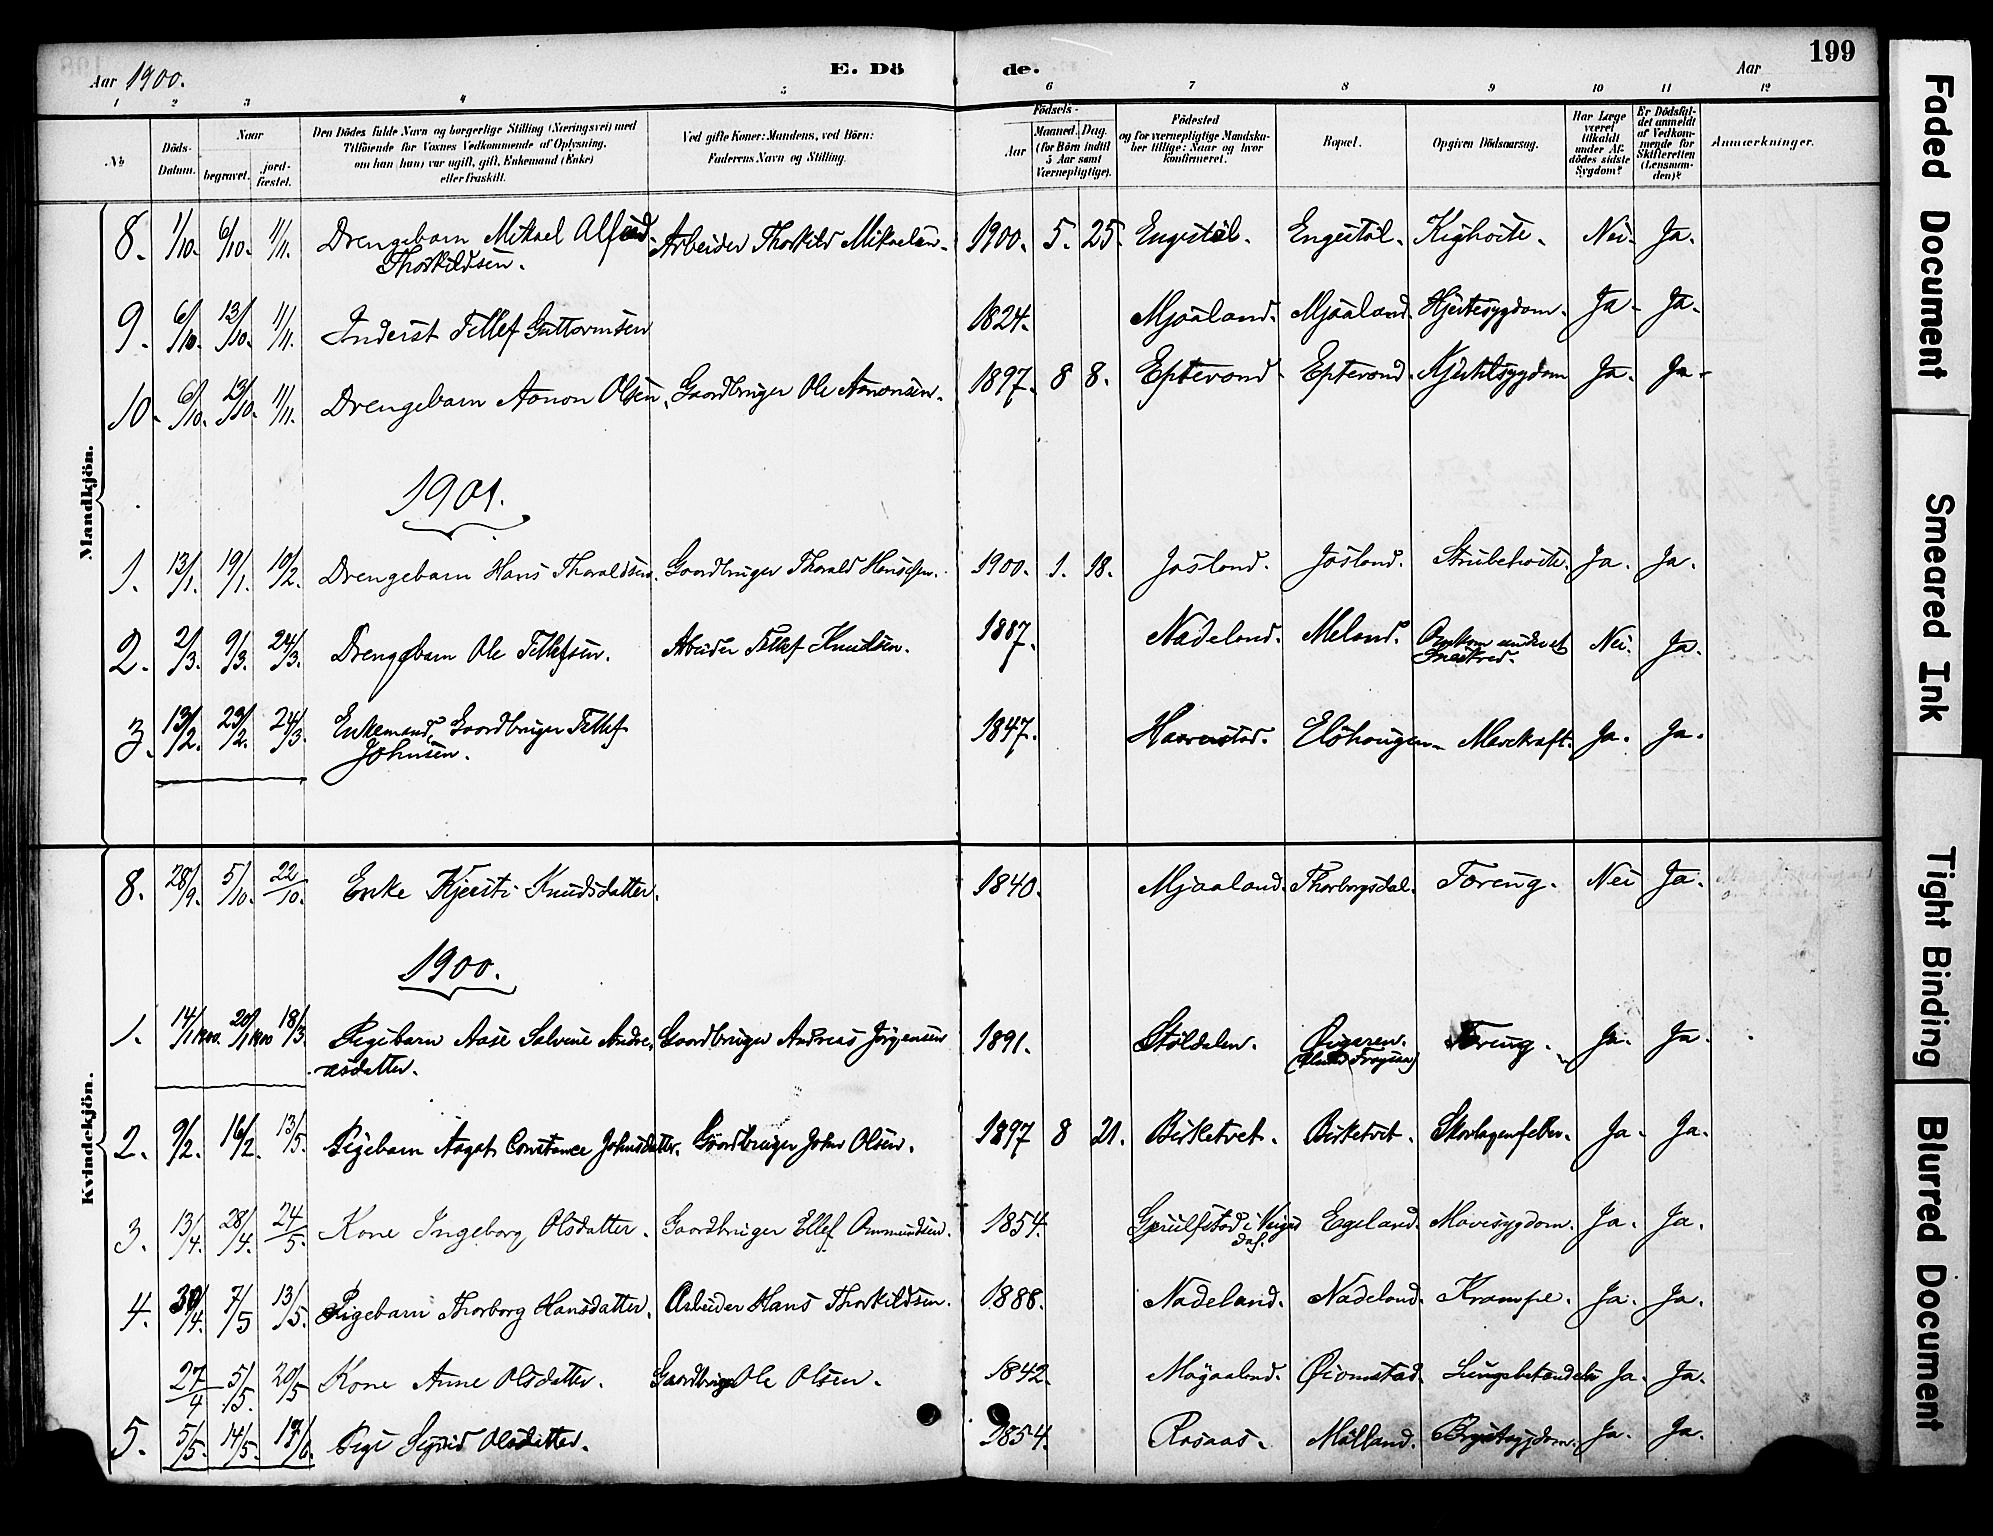 Aar 1900. E. Dö de. Aar 199
1 2 3 4 5 6 7 8 9 10 11 12
No. Döds-Datum. Naar begravet. jord-fæstet. Den Dödes fulde Navn og borgerlige Stilling (Næringsvei) med Tilföiende for Voxnes Vedkommende af Oplysning, om han (hun) var ugift, gift, Enkemand (Enke) eller fraskilt. Ved gifte Koner: Mandens, ved Börn: Faderens Navn og Stilling. Födsels- Aar Maaned. Dag. (for Börn indtil 5 Aar samt Værnepligtige). Födested og for værnepligtige Mandskaber tillige: Naar og hvor konfirmeret. Bopæl. Opgiven Dödsaarsag. Har Læge været tilkaldt under Afdödes sidste Sygdom? Er Dödsfaldet anmeldt af Vedkommende for Skifteretten (Lensmanden)? Anmærkninger.
Mandkjön.
8. 1/10. 6/10. 11/11. Drengebarn Mikael Alfred Thorkildsen. Arbeider Thorkild Mikaelsen. 1900. 5. 25. Engestöl. Engestöl. Kighoste. Nei. Ja.
9. 6/10. 13/10. 11/11. Inderst Tellef Guttormsen 1824. Mjaaland. Mjaaland. Hjertesygdom. Ja. Ja.
10. 6/10. 13/10. 11/11. Drengebarn Aanon Olsen. Gaardbruger Ole Aanonsen. 1897. 8 8. Eptevand. Eptevand. Kjertelsygdom Ja. Ja.
1901.
1. 13/1. 19/1. 10/2. Drengebarn Hans Thoraldsen. Gaardbruger Thorald Hansen. 1900. 1. 18. Josland. Josland. Strubehoste. Ja. Ja.
2. 2/3. 9/3. 24/3. Drengebarn Ole Tellefsen. Arbeider Tellef Knudsen. 1887. Nadeland. Meland. Omkom under et Sneskred. Nei. Ja.
3. 13/2. 23/2. 24/3. Enkemand, Gaardbruger Tellef Johnsen. 1847. Haverstad. Elshougen. Mavekraft. Ja. Ja.
Kvindekjön.
8. 28/9. 5/10. 22/10. Enke Kjersti Knudsdatter. 1840. Mjaaland. Thorborgsdal. Tæring. Nei Ja.
1900.
1. 14/1 1900. 20/1 1900 18/3. Pigebarn Aase Salvine Andreasdatter. Gaardbruger Andreas Jörgensen 1891. Stöldalen. Tæring. Ja. Ja.
2. 9/2. 16/2. 13/5. Pigebarn Aagot Constance Johnsdatter. Gaardbruger John Olsen. 1897 8 21. Birketvet. Birketvet. Skarlagenfeber. Ja. Ja.
3. 13/4. 28/4. 24/5. Kone Ingeborg Olsdatter. Gaardbruger Ellef Ommundsen. 1854. Egeland. Mavesygdom. Ja. Ja.
4. 30/4. 7/5 13/5. Pigebarn Thorborg Hansdatter. Arbeider Hans Thorkildsen. 1888. Nadeland. Nadeland. Krampe. Ja. Ja.
27/4 5/5. 20/5 Kone Anne Olsdatter. Gaardbruger Ole Olsen. 1842. Möjaalnd. Öiomstad. Lungebetændelse Ja. Ja.
5. 5/5. 14/5. 17/6. Pige Sigrid Olsdatter. 1854. Rosaas. Målland. Brystsygdom. Ja. Ja.
Faded Document
Smeared Ink
Tight Binding
Blurred Document